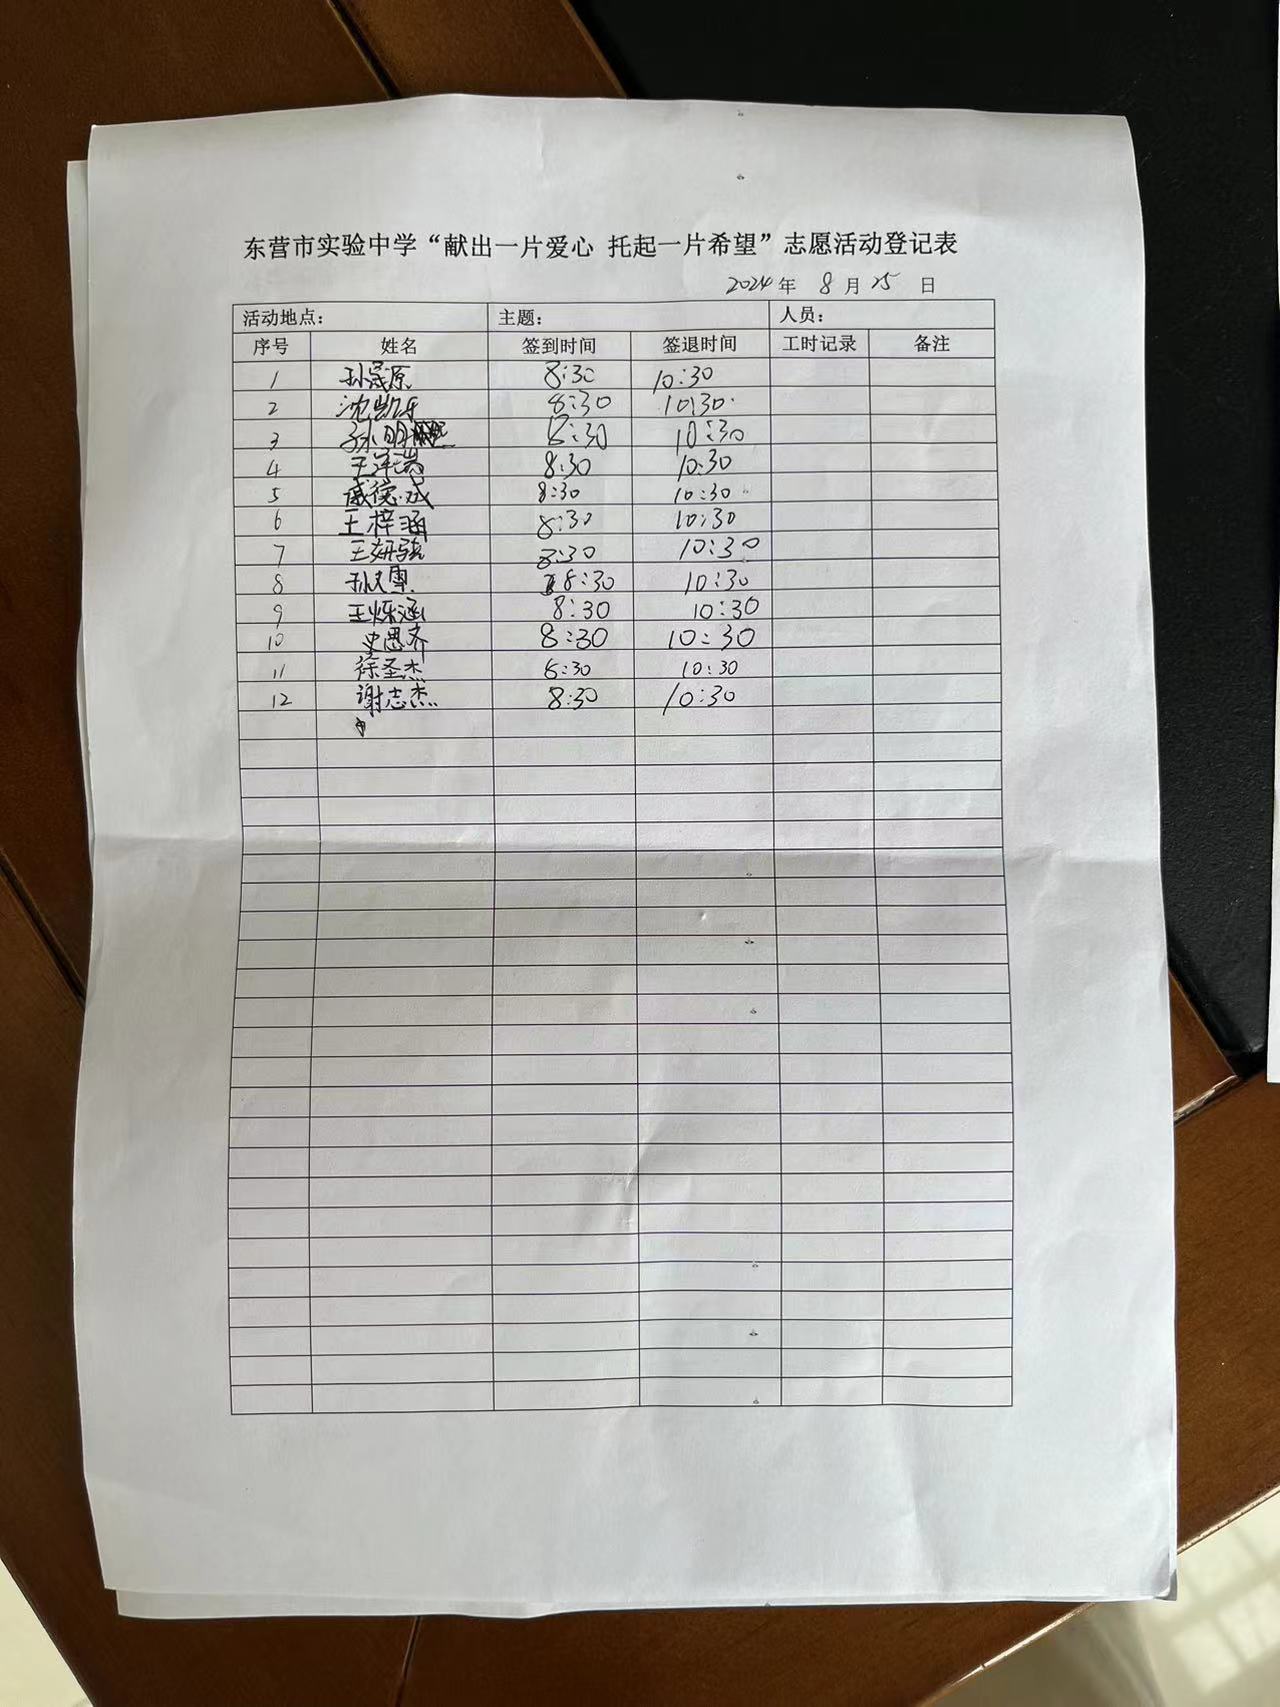 东营市实验中学“献出一片爱心 托起一片希望”志愿活动登记表
2024年 8月25日
活动地点： 主题： 人员：
序号 姓名 签到时间 签退时间 工时记录 备注
1 孙晟原 8:30 10:30
2 沈凯乐 8:30 10:30
3 孙明 8:30 10:30
4 王 8:30 10:30
5 戚德成 8:30 10:30
6 王梓涵 8:30 10:30
7 王妍骁 8:30 10:30
8 孙 8:30 10:30
9 王烁涵 8:30 10:30
10 史思齐 8:30 10:30
11 徐圣杰 8:30 10:30
12 谢志杰 8:30 10:30